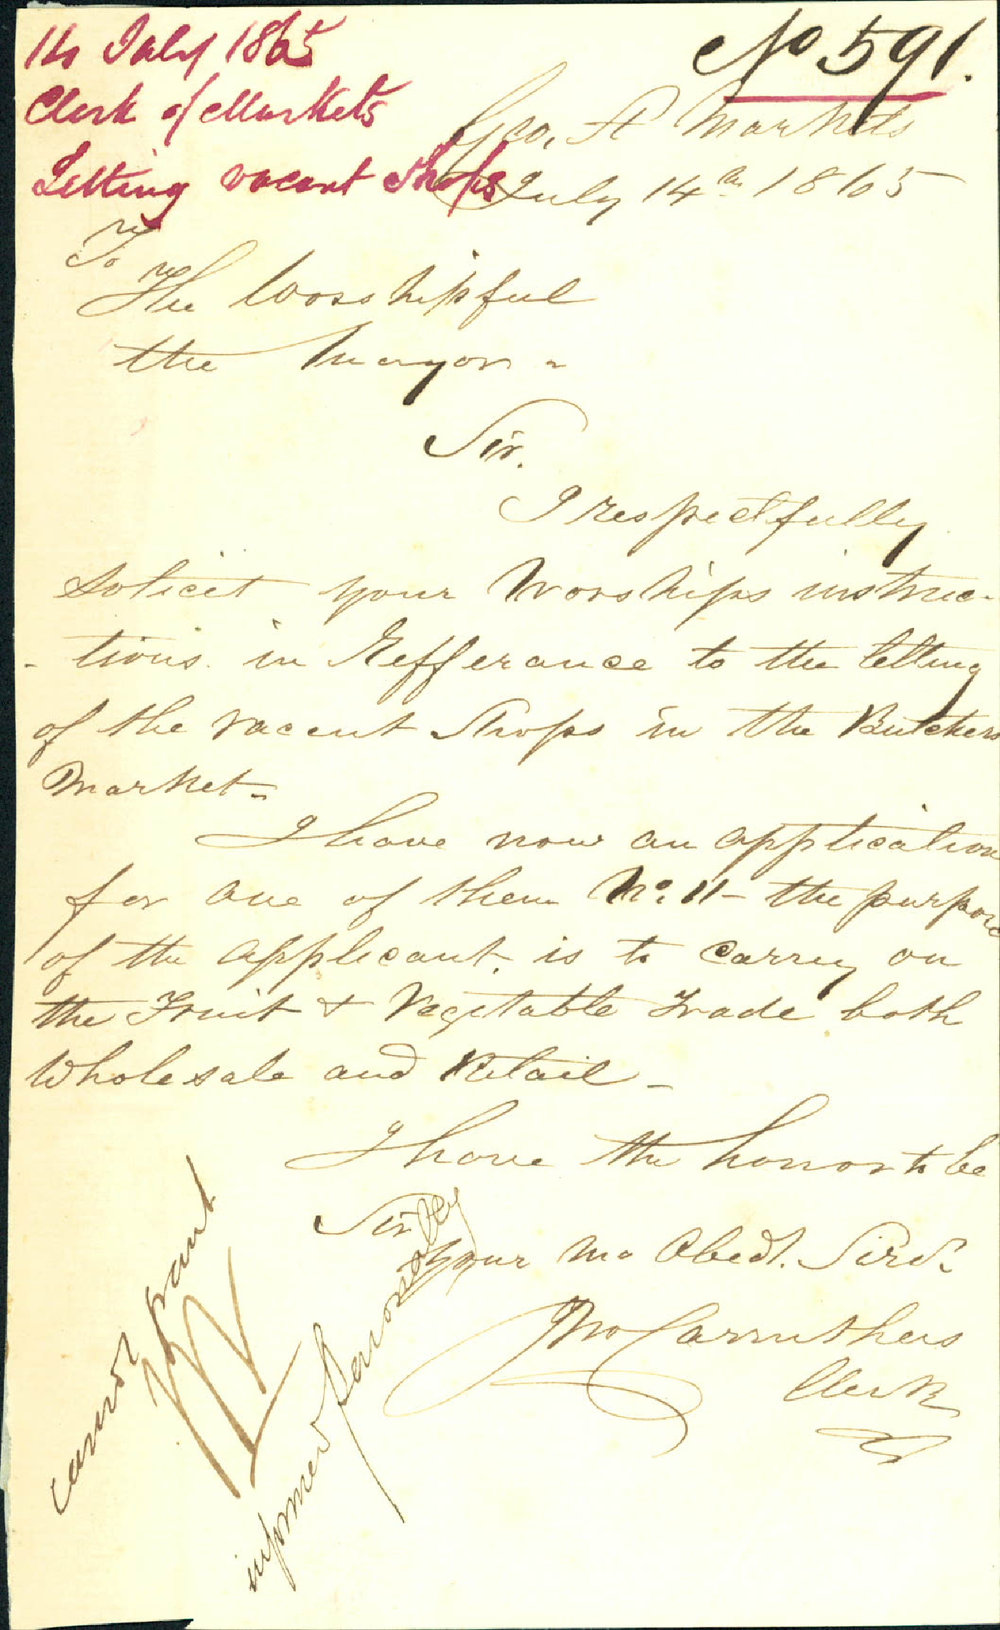 14 July 1865
Clerk of Markets
Letting vacant Shops
No 591.
Geo. St Markets
July 14th 1865
To
The Worshipful
the Mayor -
Sir.
I respectfully
solicit your Worships instruc-
- tions in Refferance to the letting
of the vacent Shops in the Butchers
Market -
I have now an application
for one of them No. 11 - the purpose
of the applicant, is to carry on
the Fruit & Vegetable Trade both
Wholesale and Retail -
I have the honor to be
Sir
Your Mo Obedt. Servt.
Jno Carruthers
Clerk
cannot grant
informed personally